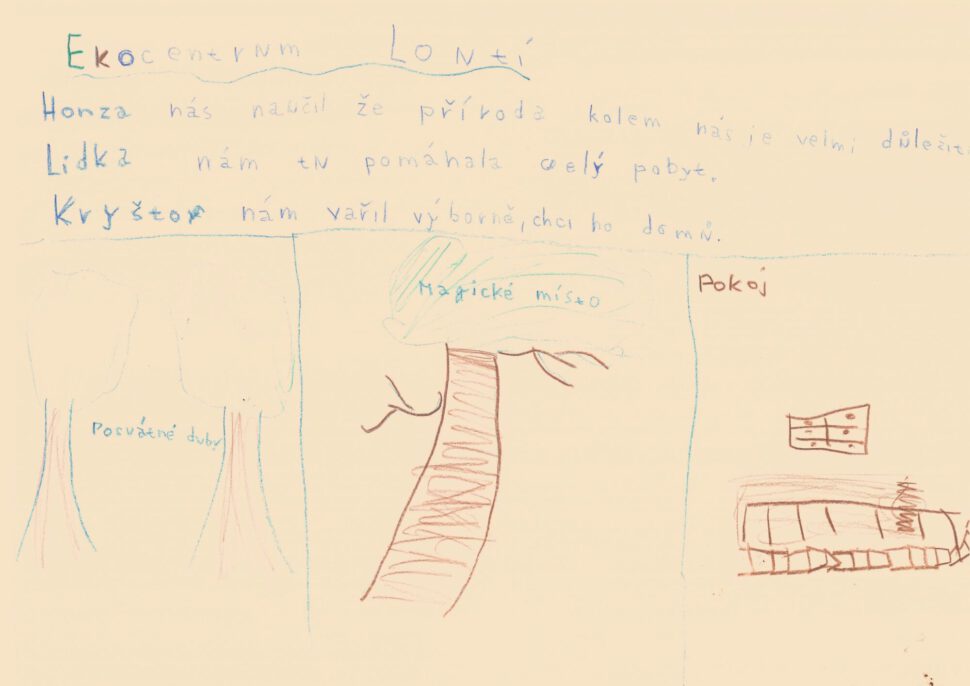 Ekocentrum Lontí
Honza nás naučil že příroda kolem nás je velmi důležit
Lidka nám tu pomáhala celý pobyt.
Kryštof nám vařil výborně, chci ho domů.
Magické místo
Pokoj
Posvátné duby